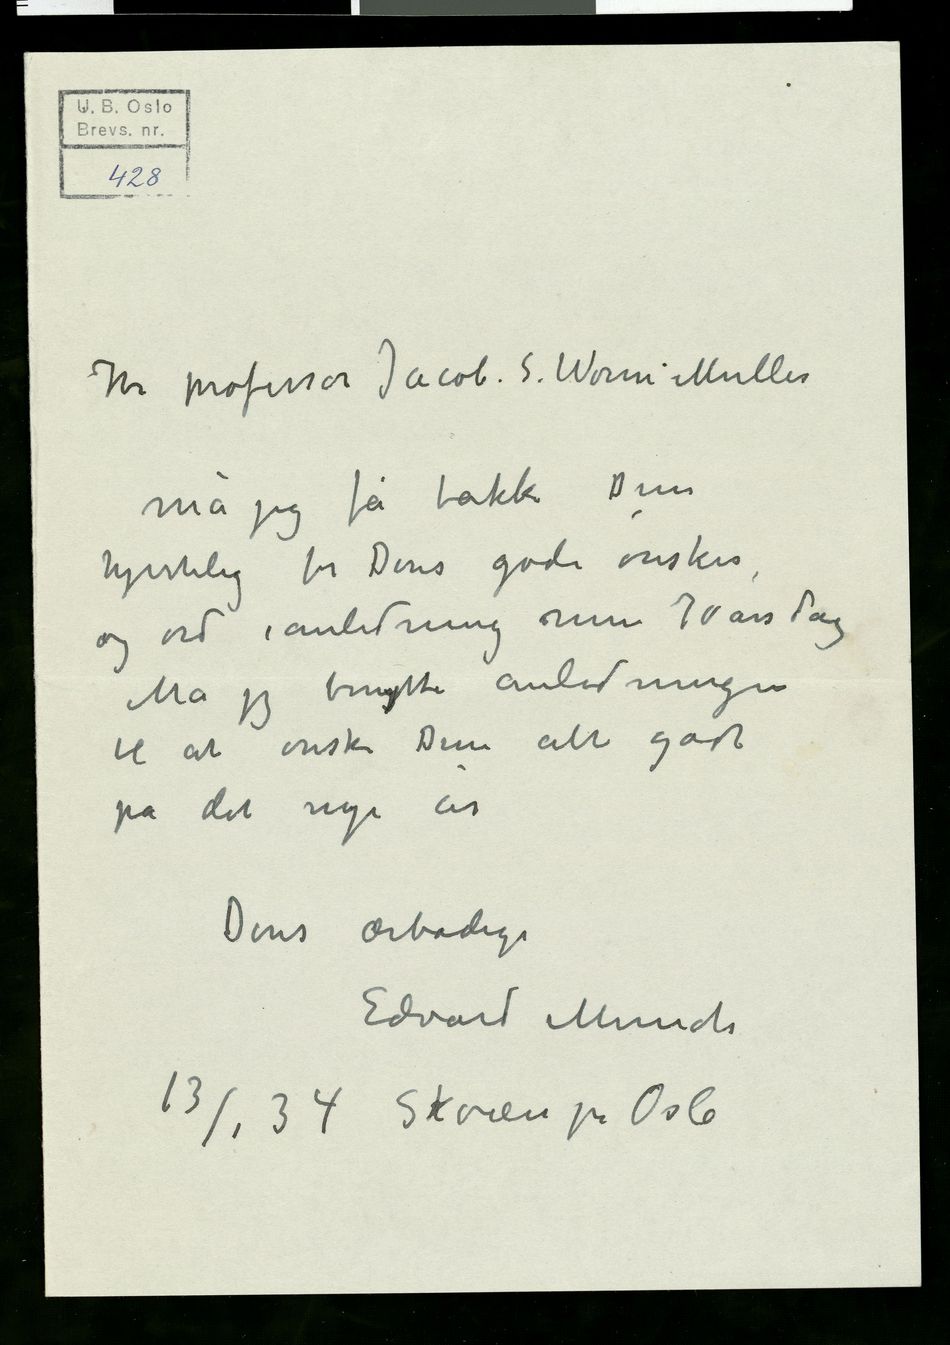 U. B. Oslo
Brevs. nr.
428
Hr professor Jacob. S. Worm-Müller
må jeg få takke Dem
hjertelig for Deres gode ønsker,
og ord i anledning min 70 års dag
Må jeg benytte anledningen
til at ønske Dem alt godt
på det nye år
Deres ærbødige
Edvard Munch
13/1 34 Skøien pr Oslo